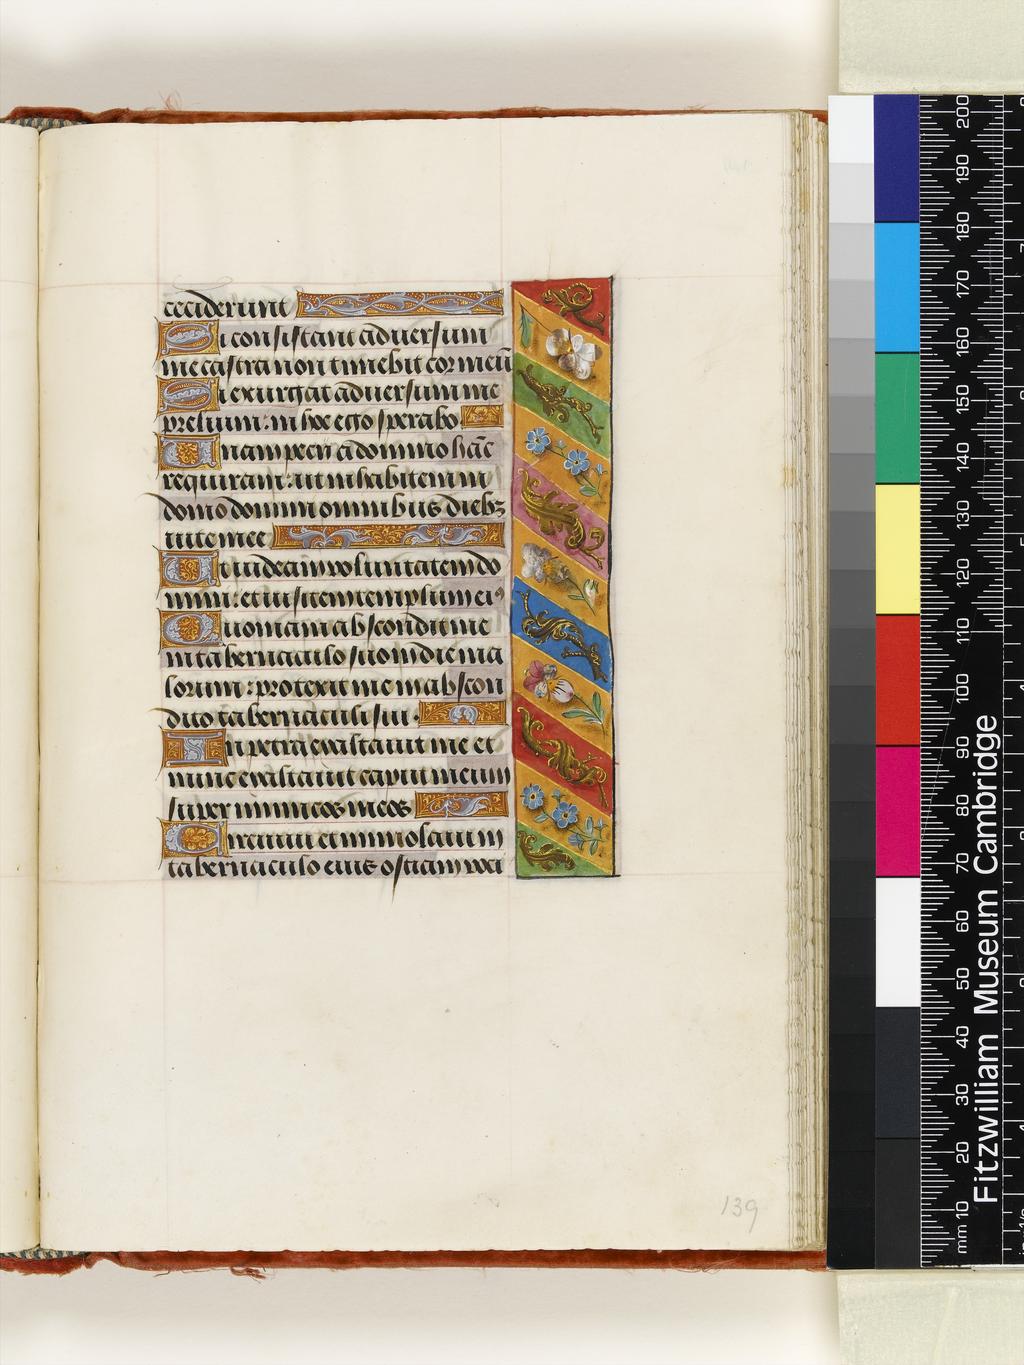 ceciderunt
Si consistant adversum
me castra non timebit cor meū
Si exurgat adversum me
prelium: in hoc ego sperabo
Unam pecii a domino hāc
requiram: ut inhabitem in
domo domini omnibus dieb3
vite mee
Ut videam voluntatem do
mini: et visitem templum eiꝰ
Quoniam abscondit me
in tabernaculo suo in die ma
lorum: protexit me in abscon
dito tabernaculi sui.
In petra exaltavit me et
nunc exaltavit caput meum
super inimicos meos
Circuivi et immolavi in
tabernaculo eius ostiam voci
139
Fitzwilliam Museum Cambridge
mm 10 20 30 40 50 60 70 80 90 100 110 120 130 140 150 160 170 180 190 200